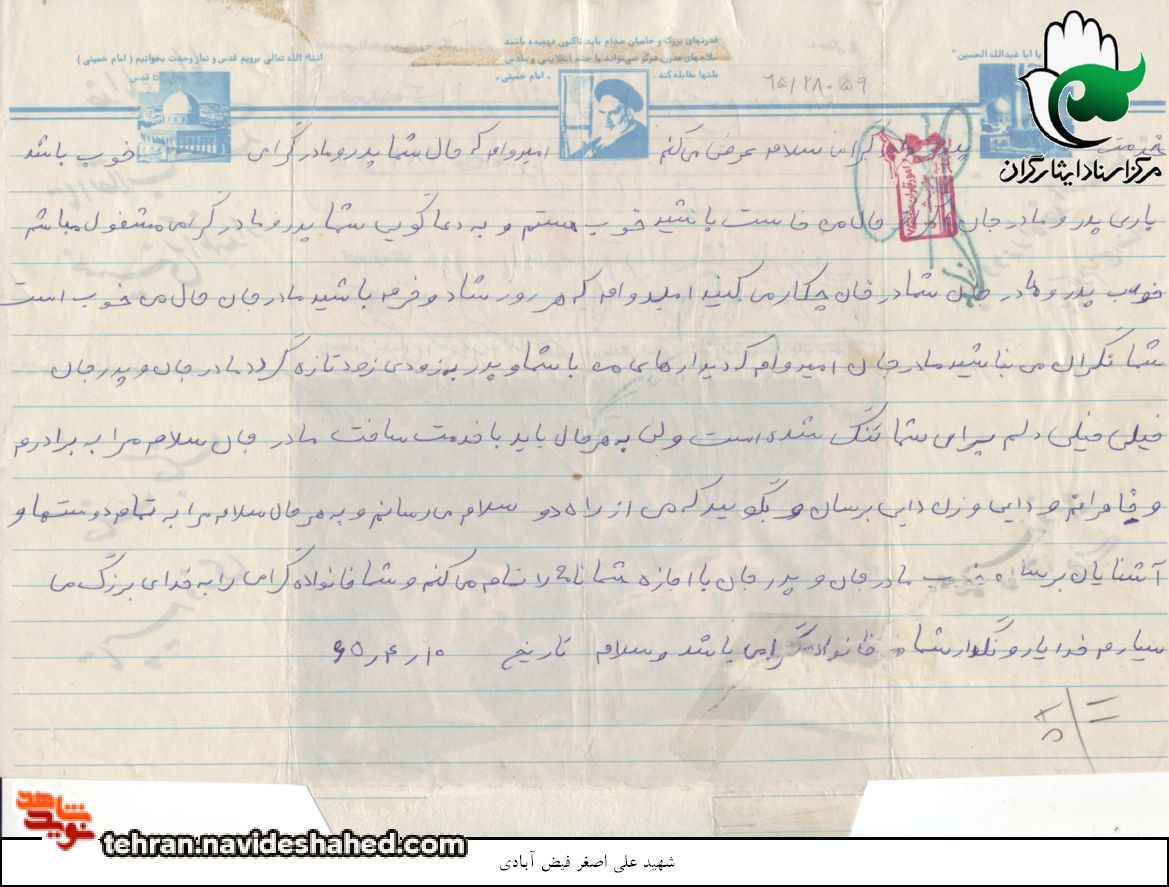 قدرتهای بزرگ و حامیان صدام باید تاکنون فهمیده باشند
سلاحهای مدرن هرگز نمی‌تواند با خشم انقلابی و مقدس
ملتها مقابله کند. « امام خمینی »
یا ابا عبدالله الحسین
انشاء الله تعالی برویم قدس و نماز وحدت بخوانیم ( امام خمینی )
تا قدس
۶۵/۲۸۰۵۹
مرکز اسناد ایثارگران
خدمت پدر و مادر گرامی سلام عرض می کنم امیدوام که حال شما پدر و مادر گرامی خوب باشد
باری پدر و مادر جان اگر از حال من خاست باشید خوب هستم و به دعا گویی شما پدر و مادر گرامی مشغول مباشم
خوب پدر و مادر جان شما در خان چکار می کنید امیدوام که هر روز شاد و خرم باشید مادر جان حال من خوب است
شما نگران من نباشید مادر جان امیدوام که دیدارهای من با شما و پدر به زودی زود تازه گردد مادر جان و پدر جان
خیلی خیلی دلم برای شما تنگ شده است ولی به هر حال باید با خدمت ساخت مادر جان سلام مرا به برادرم
و خاهرانم و دایی و زن دایی برسان و بگویید که من از راه دور سلام می رسانم و به هر حال سلام مرا به تمام دوستها و
آشنایان برسان خوب مادر جان و پدر جان با اجازه شما نامه را تمام می کنم و شما خانواده گرامی را به خدای بزرگ می
سپارم خدا یار و نگهدار شما خانواده گرامی باشد و سلام تاریخ ۱۰ر۴ر۶۵
نوید شاهد
tehran.navideshahed.com
شهید علی اصغر فیض آبادی